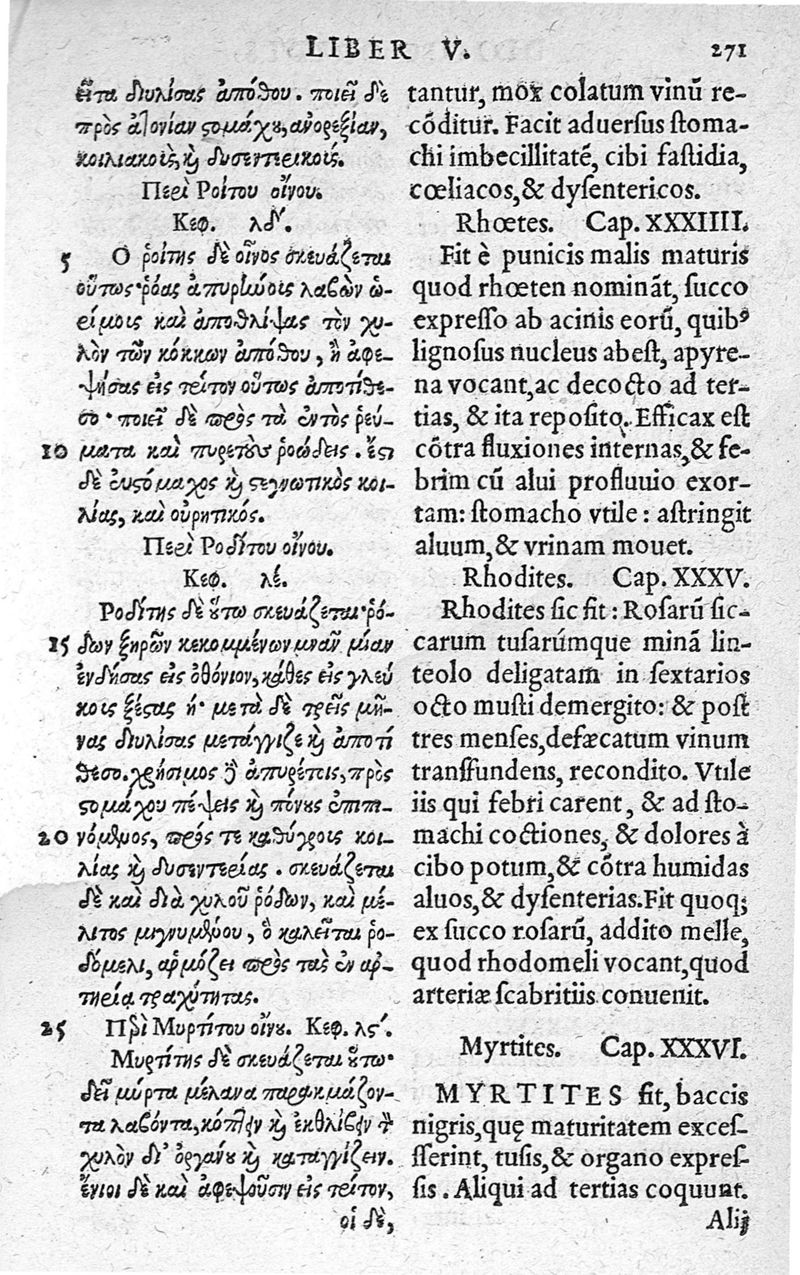 LIBER V. 271
εἶτα διυλίσας ἀπόθου. ποιεῖ δὲ
πρὸς ἀτονίαν στομάχου, ἀνορεξίαν,
κοιλιακοῖς, καὶ δυσεντερικούς.
Περὶ Ροΐτου οἴνου.
Κεφ. λδʹ.
5 Ο ῥοίτης δὲ οἶνος σκευάζεται
οὕτως· ῥόας ἀπυρίνοις λαβὼν ὡ-
ρίμοις καὶ ἀποθλίψας τὸν χυ-
λὸν τῶν κόκκων ἀπόθου, ἢ ἀφε-
ψήσας εἰς τρίτον οὕτως ἀποτίθε-
σο· ποιεῖ δὲ πρὸς τὰ ἐντὸς ῥεύ-
10 ματα καὶ πυρετοὺς ῥοώδεις. ἔστι
δὲ εὐστόμαχος καὶ στεγνωτικὸς κοι-
λίας, καὶ οὐρητικός.
Περὶ Ροδίτου οἴνου.
Κεφ. λέ.
Ροδίτης δὲ οὕτω σκευάζεται· ῥό-
15 δων ξηρῶν κεκομμένων μνᾶν μίαν
ἐνδήσας εἰς ὀθόνιον, κάθες εἰς γλεύ
κοις ξέστας ή· μετὰ δὲ τρεῖς μῆ-
νας διυλίσας μετάγγιζε καὶ ἀποτί
θεσο. χρήσιμος δὲ ἀπυρέτοις, πρὸς
στομάχου πέψεις καὶ πόνους ἐπιπι-
20 νόμενος, πρός τε καθύγροις κοι-
λίας καὶ δυσεντερίας. σκευάζεται
δὲ καὶ διὰ χυλοῦ ῥόδων, καὶ μέ-
λιτος μιγνυμένου, ὃ καλεῖται ῥο-
δόμελι, ἁρμόζει πρὸς τὰς ἐν ἀρ-
τηρία τραχύτητας.
25 Περὶ Μυρτίτου οἴνου. Κεφ. λςʹ.
Μυρτίτης δὲ σκευάζεται οὕτω·
δεῖ μύρτα μέλανα παρακμάζον-
τα λαβόντα, κόπτειν καὶ ἐκθλίβειν τὸν
χυλὸν δι' ὀργάνου καὶ καταγγίζειν.
ἔνιοι δὲ καὶ ἀφεψοῦσιν εἰς τρίτον,
οἱ δὲ,
tantur, mox colatum vinũ re-
cõditur. Facit aduersus stoma-
chi imbecillitatẽ, cibi fastidia,
cœliacos, & dysentericos.
Rhœtes. Cap. XXXIIII.
Fit è punicis malis maturis
quod rhœten nominãt, succo
expresso ab acinis eorũ, quibꝰ
lignosus nucleus abest, apyre-
na vocant, ac decocto ad ter-
tias, & ita reposito. Efficax est
cõtra fluxiones internas, & fe-
brim cũ alui profluuio exor-
tam: stomacho vtile: astringit
aluum, & vrinam mouet.
Rhodites. Cap. XXXV.
Rhodites sic fit: Rosarũ sic-
carum tusarúmque minã lin-
teolo deligatam in sextarios
octo musti demergito: & post
tres menses, defæcatum vinum
transfundens, recondito. Vtile
iis qui febri carent, & ad sto-
machi coctiones, & dolores à
cibo potum, & cõtra humidas
aluos, & dysenterias. Fit quoq;
ex succo rosarũ, addito melle,
quod rhodomeli vocant, quod
arteriæ scabritiis conuenit.
Myrtites. Cap. XXXVI.
MYRTITES fit, baccis
nigris, quę maturitatem exces-
sserint, tusis, & organo expres-
sis. Aliqui ad tertias coquunt.
Alij